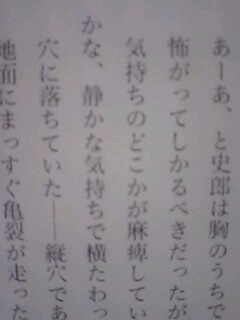 あーあ、と史郎は胸のうちで
怖がってしかるべきだったが
気持ちのどこかが麻痺してい
かな、静かな気持ちで横たわっ
穴に落ちていた――縦穴であ
地面にまっすぐ亀裂が走った